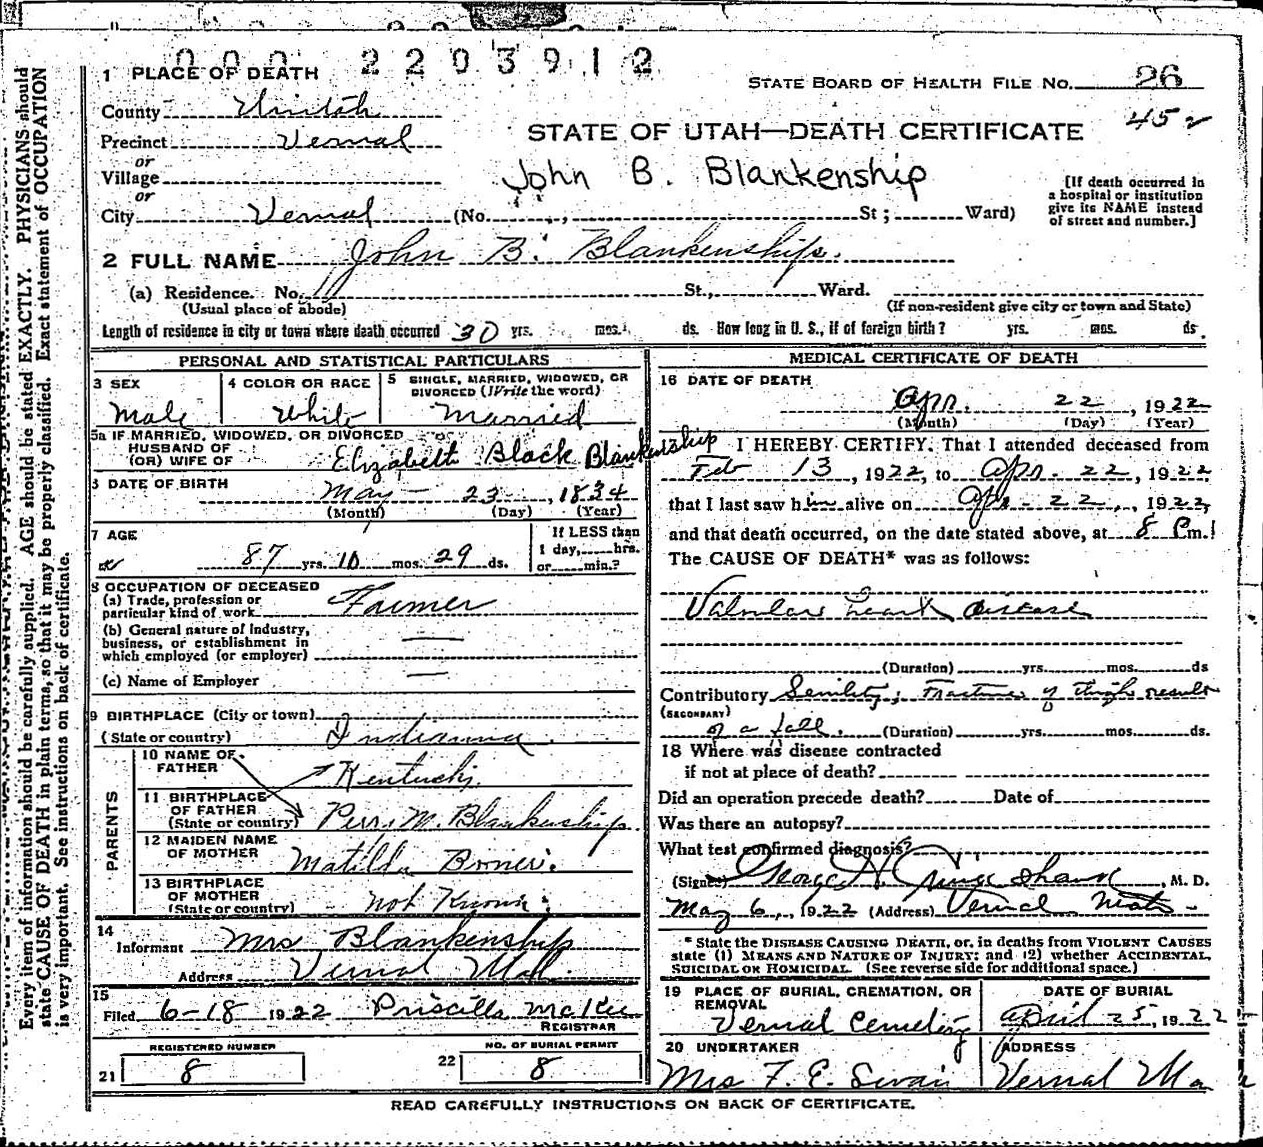 000 2203912
1 PLACE OF DEATH
STATE BOARD OF HEALTH FILE No. 26
County Uintah
452
Precinct Vernal
STATE OF UTAH—DEATH CERTIFICATE
or
Village
John B. Blankenship
or
City Vernal (No. St; Ward)
[If death occurred in
a hospital or institution
give its NAME instead
of street and number.]
2 FULL NAME John B. Blankenship.
(a) Residence. No. St., Ward.
(Usual place of abode) (If non-resident give city or town and State)
Length of residence in city or town where death occurred 30 yrs. mos. ds. How long in U. S., if of foreign birth? yrs. mos. ds.
PERSONAL AND STATISTICAL PARTICULARS
3 SEX
Male
4 COLOR OR RACE
White
5 SINGLE, MARRIED, WIDOWED, OR
DIVORCED (Write the word)
Married
5a IF MARRIED, WIDOWED, OR DIVORCED
HUSBAND OF
(OR) WIFE OF Elizabeth Black Blankenship
DATE OF BIRTH
May 23, 1834
(Month) (Day) (Year)
7 AGE
87 yrs. 10 mos. 29 ds.
If LESS than
1 day, hrs.
or min.?
8 OCCUPATION OF DECEASED
(a) Trade, profession or
particular kind of work Farmer
(b) General nature of industry,
business, or establishment in
which employed (or employer) —
(c) Name of Employer —
9 BIRTHPLACE (City or town)
(State or country) Indianna.
PARENTS
10 NAME OF
FATHER Kentucky.
11 BIRTHPLACE
OF FATHER
(State or country) Perry M. Blankenship.
12 MAIDEN NAME
OF MOTHER Matilda
13 BIRTHPLACE
OF MOTHER
(State or country) not Known.
14
Informant Mrs Blankenship
Address Vernal Utah.
15
Filed 6-18 1922 Priscilla McKee
REGISTRAR
REGISTERED NUMBER
21 8
NO. OF BURIAL PERMIT
22 8
MEDICAL CERTIFICATE OF DEATH
16 DATE OF DEATH
Apr. 22, 1922
(Month) (Day) (Year)
I HEREBY CERTIFY, That I attended deceased from
Feb 13, 1922, to Apr. 22, 1922
that I last saw him alive on Apr. 22, 1922,
and that death occurred, on the date stated above, at 8 Pm.
The CAUSE OF DEATH* was as follows:
Valvular heart disease
(Duration) yrs. mos. ds
Contributory Senility; Fracture of thigh result
(SECONDARY)
of a fall. (Duration) yrs. mos. ds.
18 Where was disease contracted
if not at place of death?
Did an operation precede death? Date of
Was there an autopsy?
What test confirmed diagnosis?
(Signed) George H. , M. D.
May 6, 1922 (Address) Vernal Utah
* State the DISEASE CAUSING DEATH, or, in deaths from VIOLENT CAUSES
state (1) MEANS AND NATURE OF INJURY; and (2) whether ACCIDENTAL,
SUICIDAL OR HOMICIDAL. (See reverse side for additional space.)
19 PLACE OF BURIAL, CREMATION, OR
REMOVAL
Vernal Cemetery
DATE OF BURIAL
April 25, 1922
20 UNDERTAKER
Mrs F. E. Swain
ADDRESS
Vernal
READ CAREFULLY INSTRUCTIONS ON BACK OF CERTIFICATE.
Every item of information should be carefully supplied. AGE should be stated EXACTLY. PHYSICIANS should
state CAUSE OF DEATH in plain terms, so that it may be properly classified. Exact statement of OCCUPATION
is very important. See instructions on back of certificate.